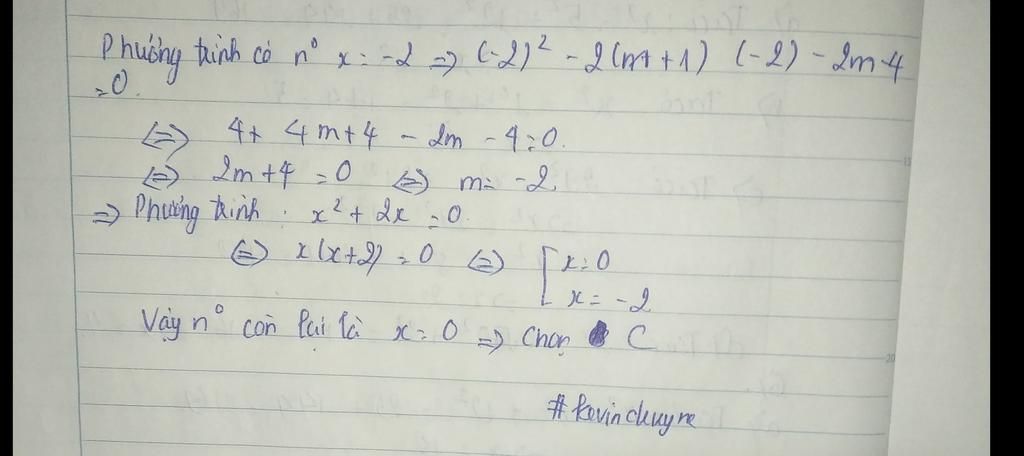 Phương trình có n° x = -2 => (-2)² - 2(m+1) (-2) - 2m-4
=0.
<=> 4+ 4m+4 - 2m - 4=0.
<=> 2m+4 =0 <=> m= -2.
=> Phương trình: x² + 2x =0.
<=> x(x+2) =0 <=> [ x=0
x= -2
Vậy n° còn lại là x=0 => Chọn C
#kevinchuyre